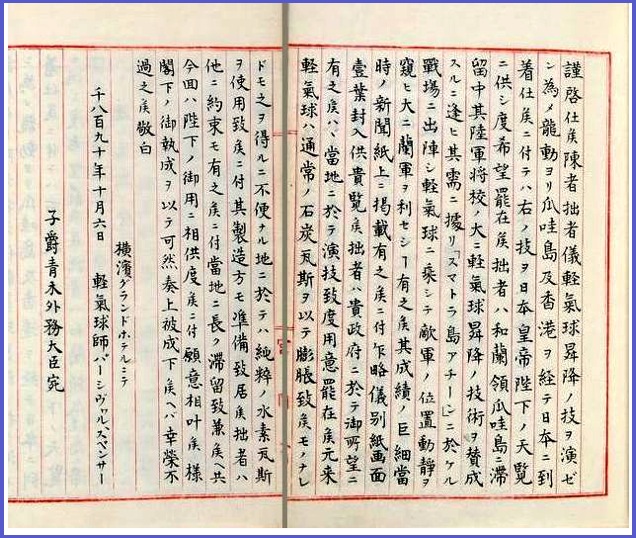 謹啓仕矣陳者拙者儀軽氣球昇降ノ技ヲ演ゼ
ン為メ龍動ヨリ瓜哇島及香港ヲ経テ日本ニ到
着仕矣ニ付テハ右ノ技ヲ日本皇帝陛下ノ天覧
ニ供シ度希望罷在矣拙者ハ和蘭領瓜哇島ニ滞
留中其陸軍將校ノ大ニ軽氣球昇降ノ技術ヲ賛成
スルニ逢ヒ其需ニ據リスマトラ島アチーンニ於ケル
戰場ニ出陣シ軽氣球ニ乗シテ敵軍ノ位置動靜ヲ
窺ヒ大ニ蘭軍ヲ利セシ一有之矣其成績ノ巨細當
時ノ新聞紙上ニ掲載有之矣ニ付乍略儀別紙画面
壹葉封入供貴覧矣拙者ハ貴政府ニ於テ御所望ニ
有之矣ハヽ當地ニ於テ演技致度用意罷在矣元来
軽氣球ハ通常ノ石炭瓦斯ヲ以テ膨脹致矣モノナレ
ドモ之ヲ得ルニ不便ナル地ニ於テハ純粋ノ水素瓦斯
ヲ使用致矣ニ付其製造方モ準備致居矣拙者ハ
他ニ約束モ有之矣ニ付當地ニ長ク滞留致兼矣ヘ共
今回ハ陛下ノ御用ニ相供度矣ニ付願意相叶矣様
閣下ノ御執成ヲ以テ可然奏上被成下矣ヘハ幸榮不
過之矣敬白
橫濱グランドホテルニテ
千八百九十年十月六日 軽氣球師パーシヴァルスペンサー
子爵青木外務大臣宛